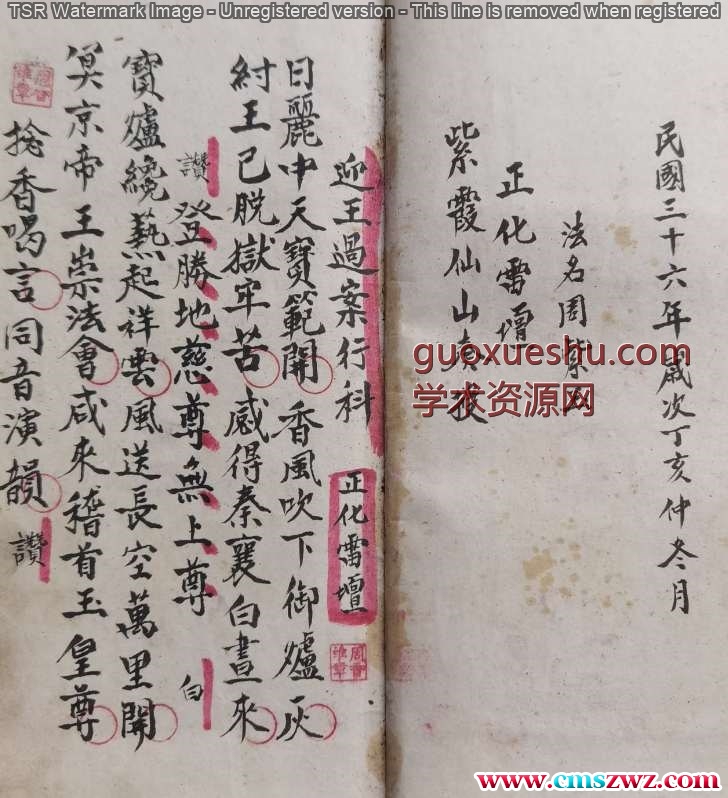 TSR Watermark Image - Unregistered version - This line is removed when registered
民國三十六年歲次丁亥仲冬月
法名周紫
正化雷壇
紫霞仙山
迎王過案行科 正化雷壇
日麗中天寶範開 香風吹下御爐灰
紂王已脫獄牢苦 感得秦襄白晝來
讚 登勝地慈尊無上尊 白
寶爐纔爇起祥雲風送長空萬里開
冥京帝王崇法會咸來稽首玉皇尊
捻香喝言同音演韻 讚
guoxueshu.com
学术资源网
www.cmszwz.com